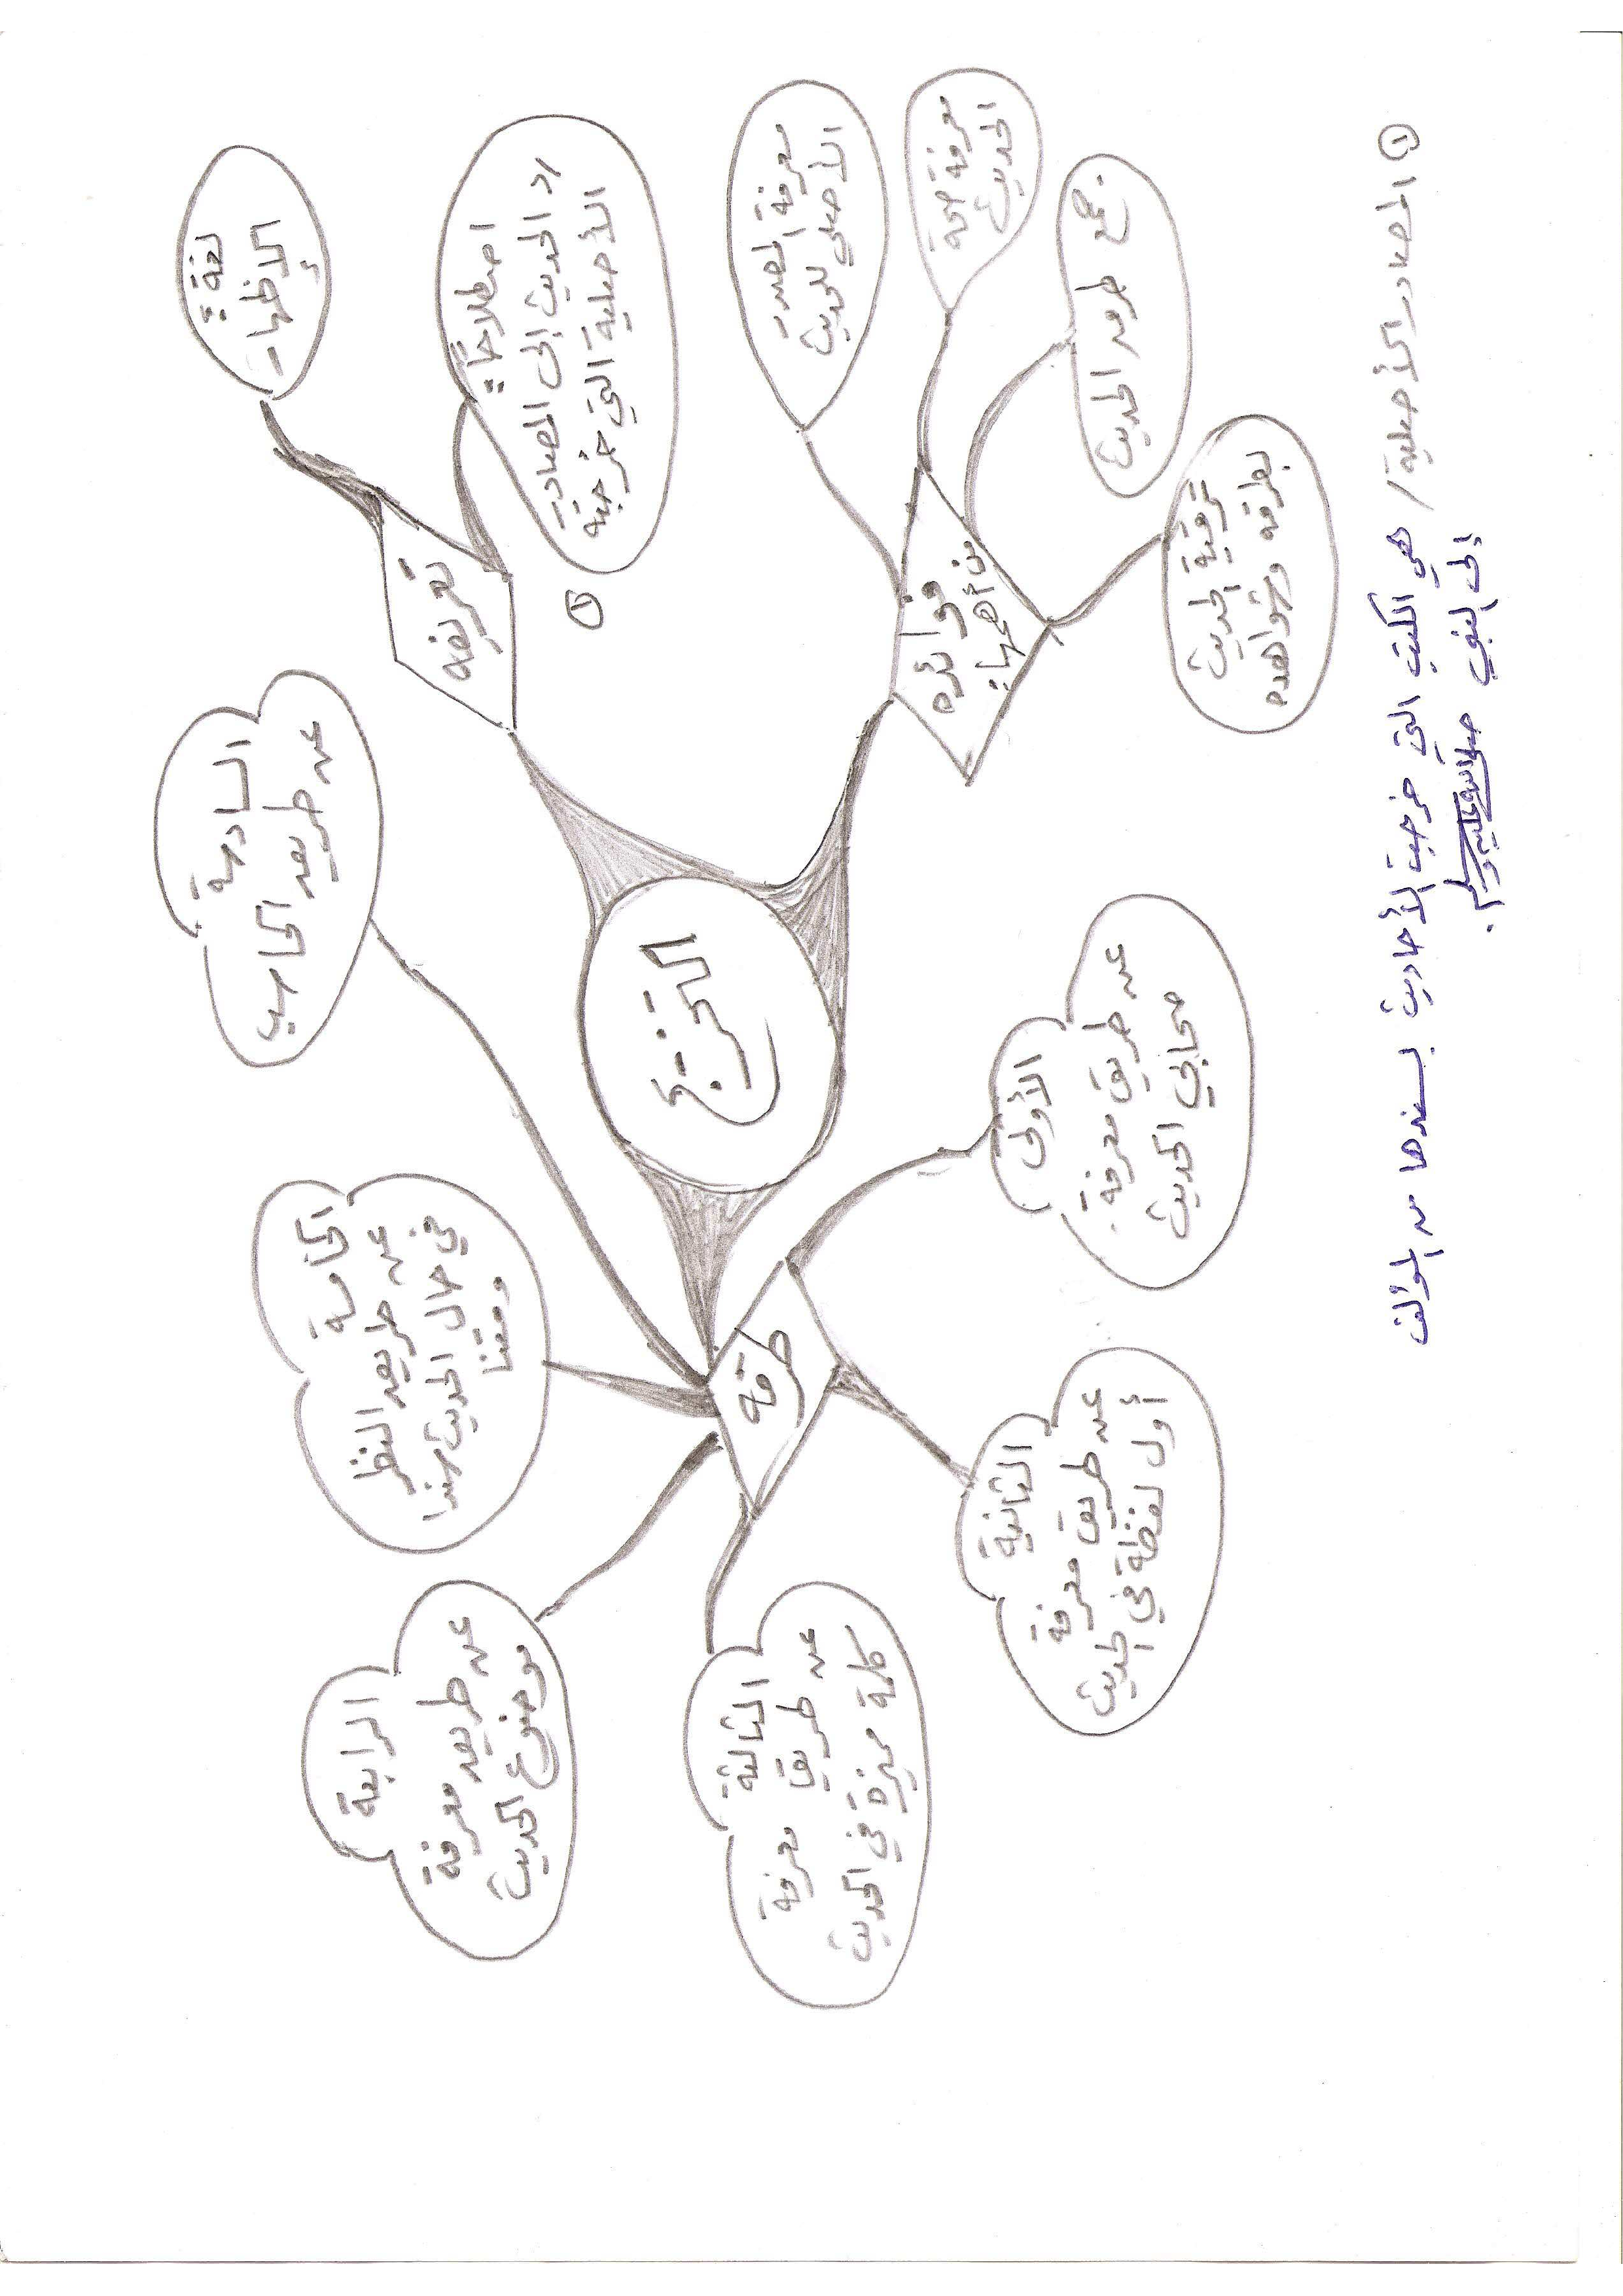 التخريج
تعريفه
لغة:
الإظهار
اصطلاحاً:
رد الحديث إلى المصادر
الأصلية التي خرجته
①
فوائده
من أهمها:
معرفة المصدر
الأصلي للحديث
معرفة صحة
الحديث
جمع طرق الحديث
ترقية الحديث
بطرقه وشواهده
طرقه
الأولى
عن طريق معرفة
صحابي الحديث
الثانية
عن طريق معرفة
أول لفظة في الحديث
الثالثة
عن طريق معرفة
كلمة مميزة في الحديث
الرابعة
عن طريق معرفة
موضوع الحديث
الخامسة
عن طريق النظر
في حال الحديث سندا
ومتنا
السادسة
عن طريق الحاسب
① المصادر الأصلية / هي الكتب التي خرجت الأحاديث بسندها من المؤلف
إلى النبي صلى الله عليه وسلم.